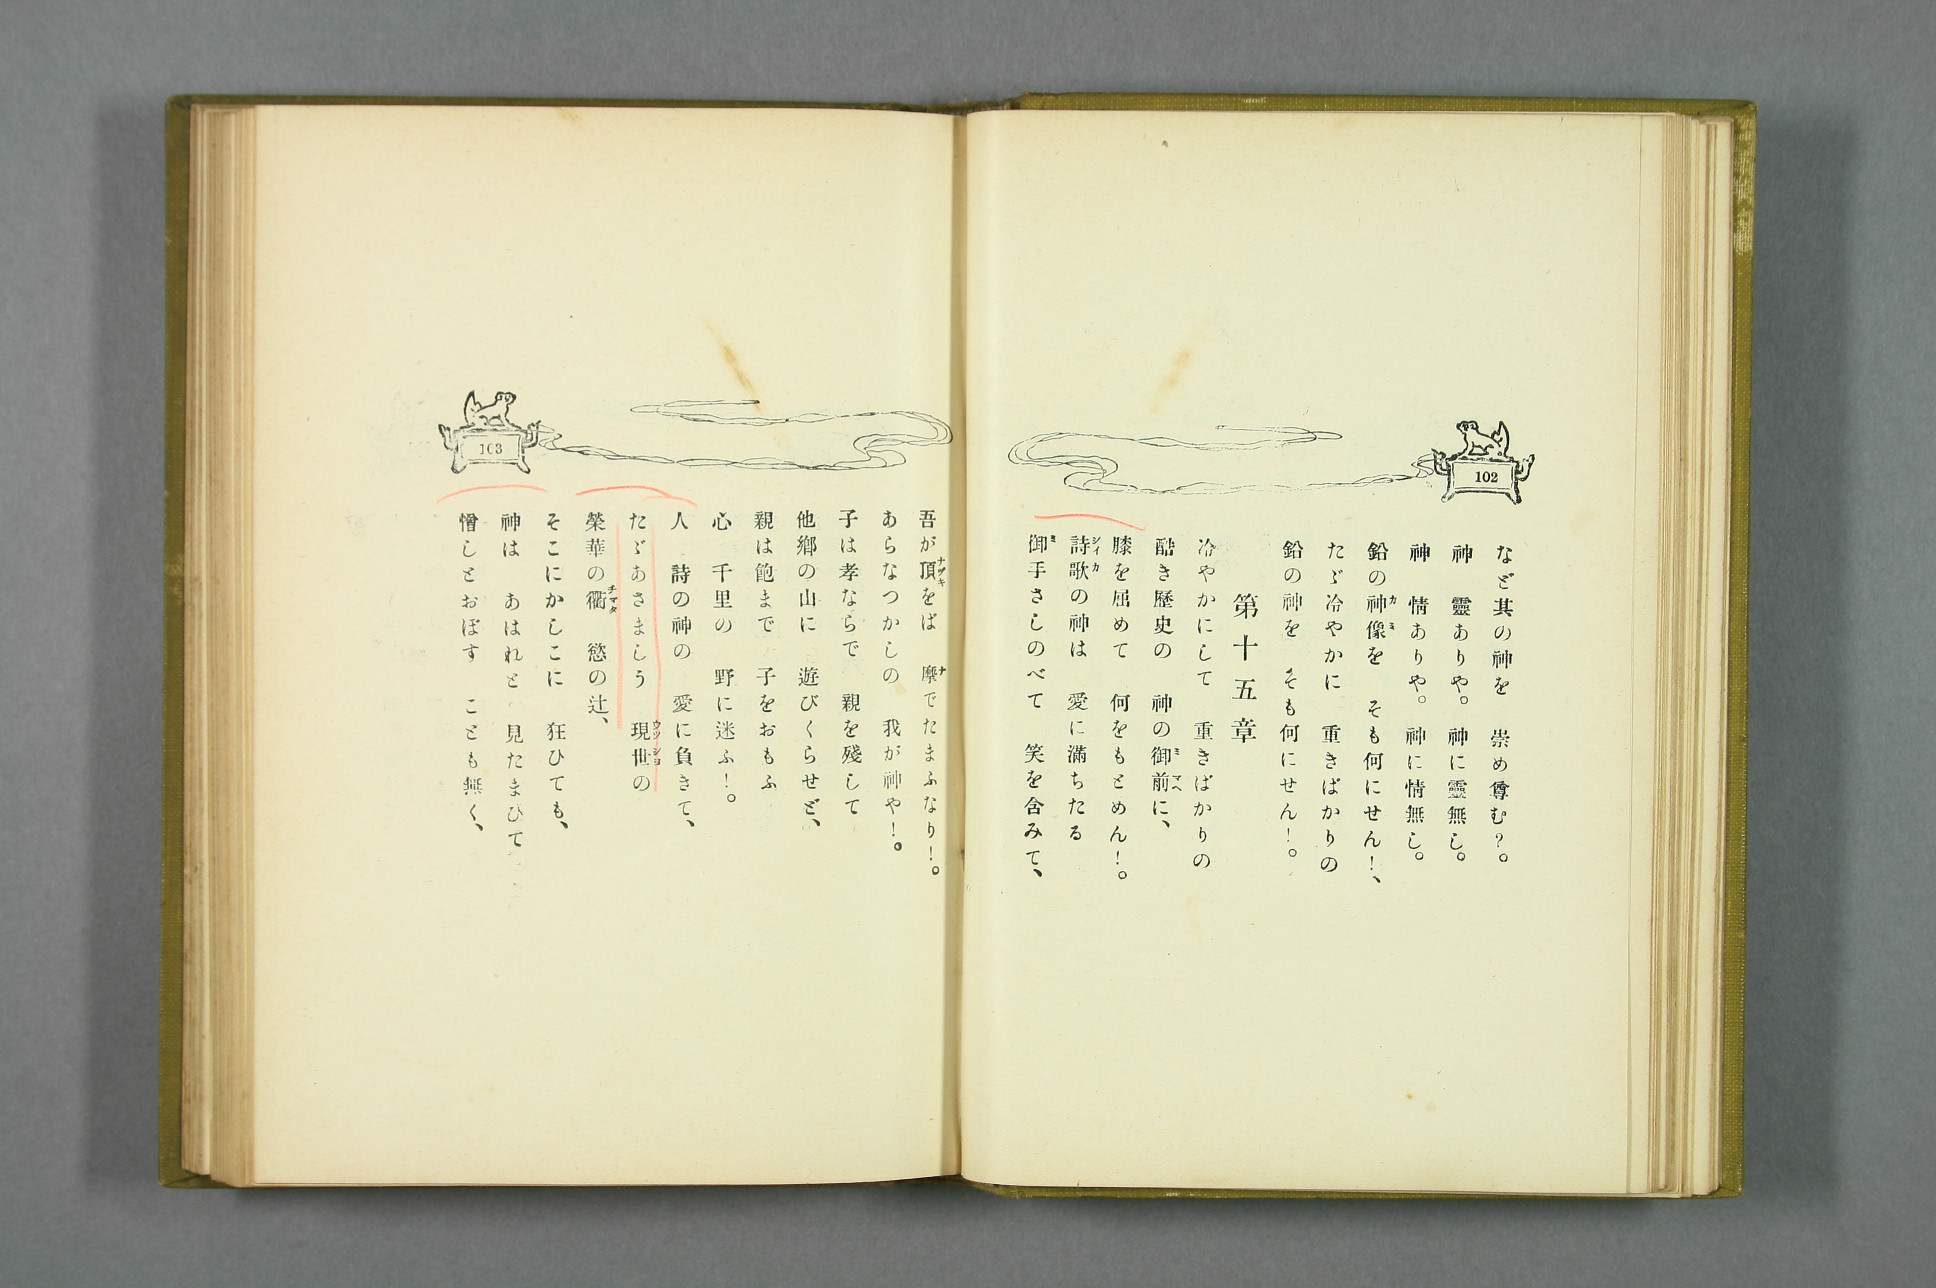 102
など其の神を　崇め尊む?。
神　靈ありや。　神に靈無し。
神　情ありや。　神に情無し。
鉛の神像を　そも何にせん!、
たゞ冷やかに　重きばかりの
鉛の神を　そも何にせん!。
第十五章
冷やかにして　重きばかりの
酷き歷史の　神の御前に、
膝を屈めて　何をもとめん!。
詩歌の神は　愛に滿ちたる
御手さしのべて　笑を含みて、
103
吾が頂をば　摩でたまふなり!。
あらなつかしの　我が神や!。
子は孝ならで　親を殘して
他鄕の山に　遊びくらせど、
親は飽まで　子をおもふ
心　千里の　野に迷ふ!。
人　詩の神の　愛に負きて、
たゞあさましう　現世の
榮華の衢　慾の辻、
そこにかしこに　狂ひても、
神は　あはれと　見たまひて
憎しとおぼす　ことも無く、